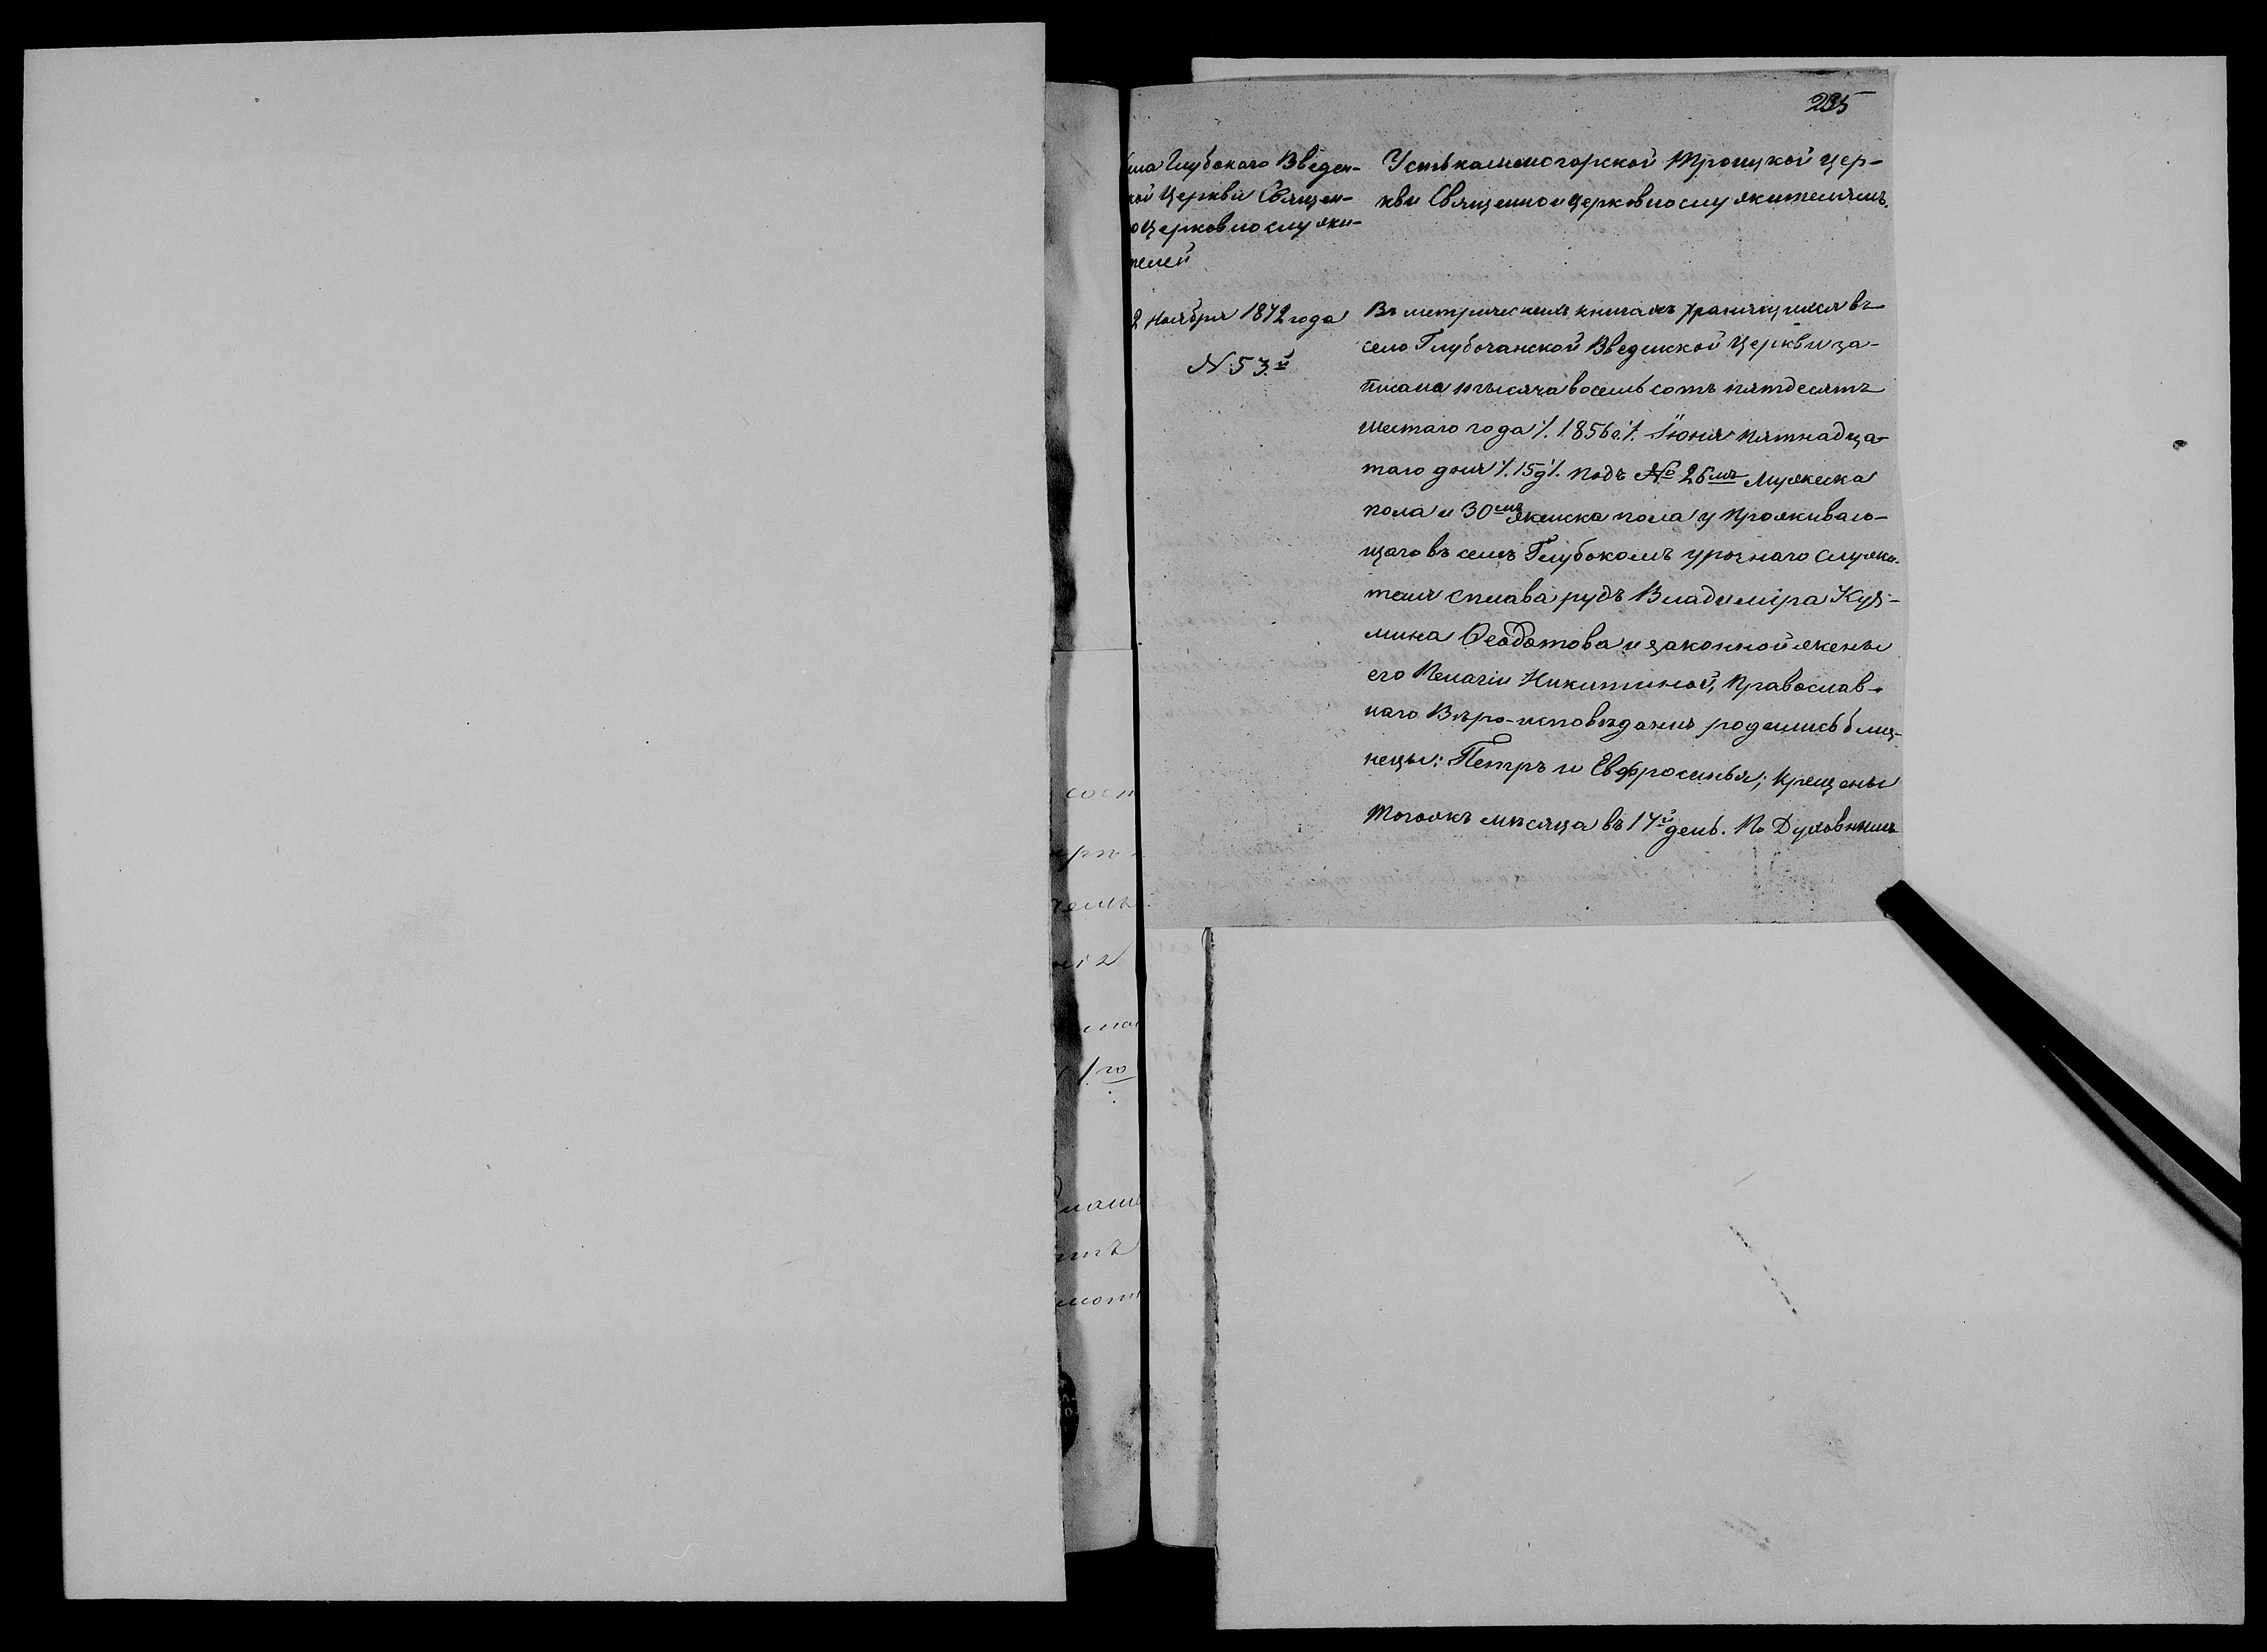 235
ла Глубокаго Введен-
кой Церкви Священ-
оцерковнослужи-
телей
2 Ноября 1872 года
N 53.й
Устькаменогорской Троицкой Цер-
кви Священноицерковнослужителямъ.
Въ метрическихъ книгахъ хранящихся въ
село Глубочанской Введенской Церкви за-
писано тысяча восемь сотъ пятдесятъ
шестаго года ٪ 1856 г. ٪ Іюня пятнадца-
таго дня ٪ 15 д ٪ подъ № 26мъ Мужеска
пола и 30мъ женска пола у проживаю-
щаго въ селѣ Глубокомъ урочнаго служи-
теля сплава рудъ Владиміра Кузь-
мина Ѳеодотова и законной жены
его Пелагіи Никитиной, Православ-
наго Вѣро-исповѣданія родились близ-
нецы: Петръ и Евфросинья; крещены
тогожъ мѣсяца въ 17й день. По Духовнымъ
сост
рп
чемъ
ніе
1го
наше
тъ